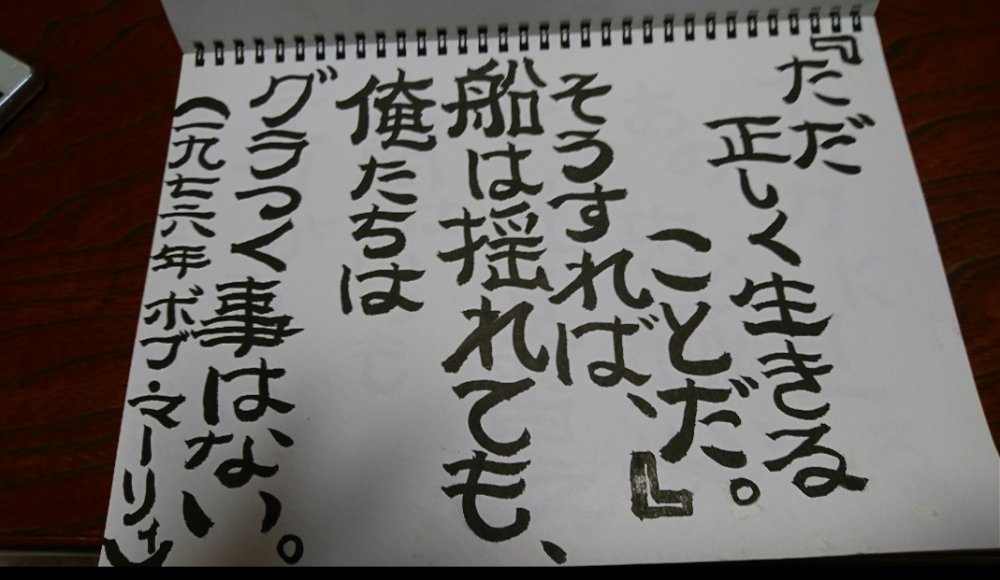 『ただ
正しく生きる
ことだ。』
そうすれば、
船は揺れても、
俺たちは
グラつく事はない。
(一九七六年ボブ・マーリィ)